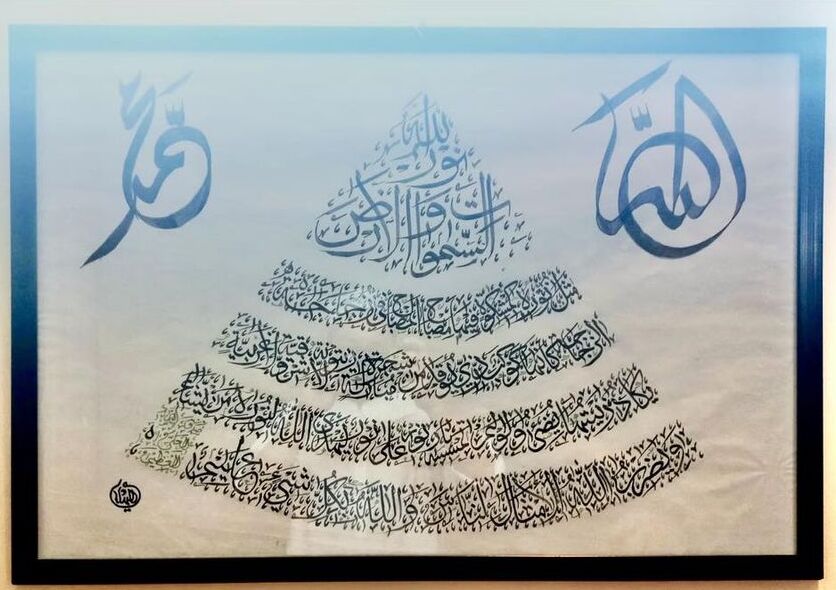 الله
محمد
الله
نور
السموات والأرض
مثل نوره كمشكوة فيها مصباح المصباح في زجاجة
الزجاجة كأنها كوكب دري يوقد من شجرة مباركة زيتونة لا شرقية ولا غربية
يكاد زيتها يضيء ولو لم تمسسه نار نور على نور يهدي الله لنوره من يشاء
ويضرب الله الأمثال للناس والله بكل شيء عليم